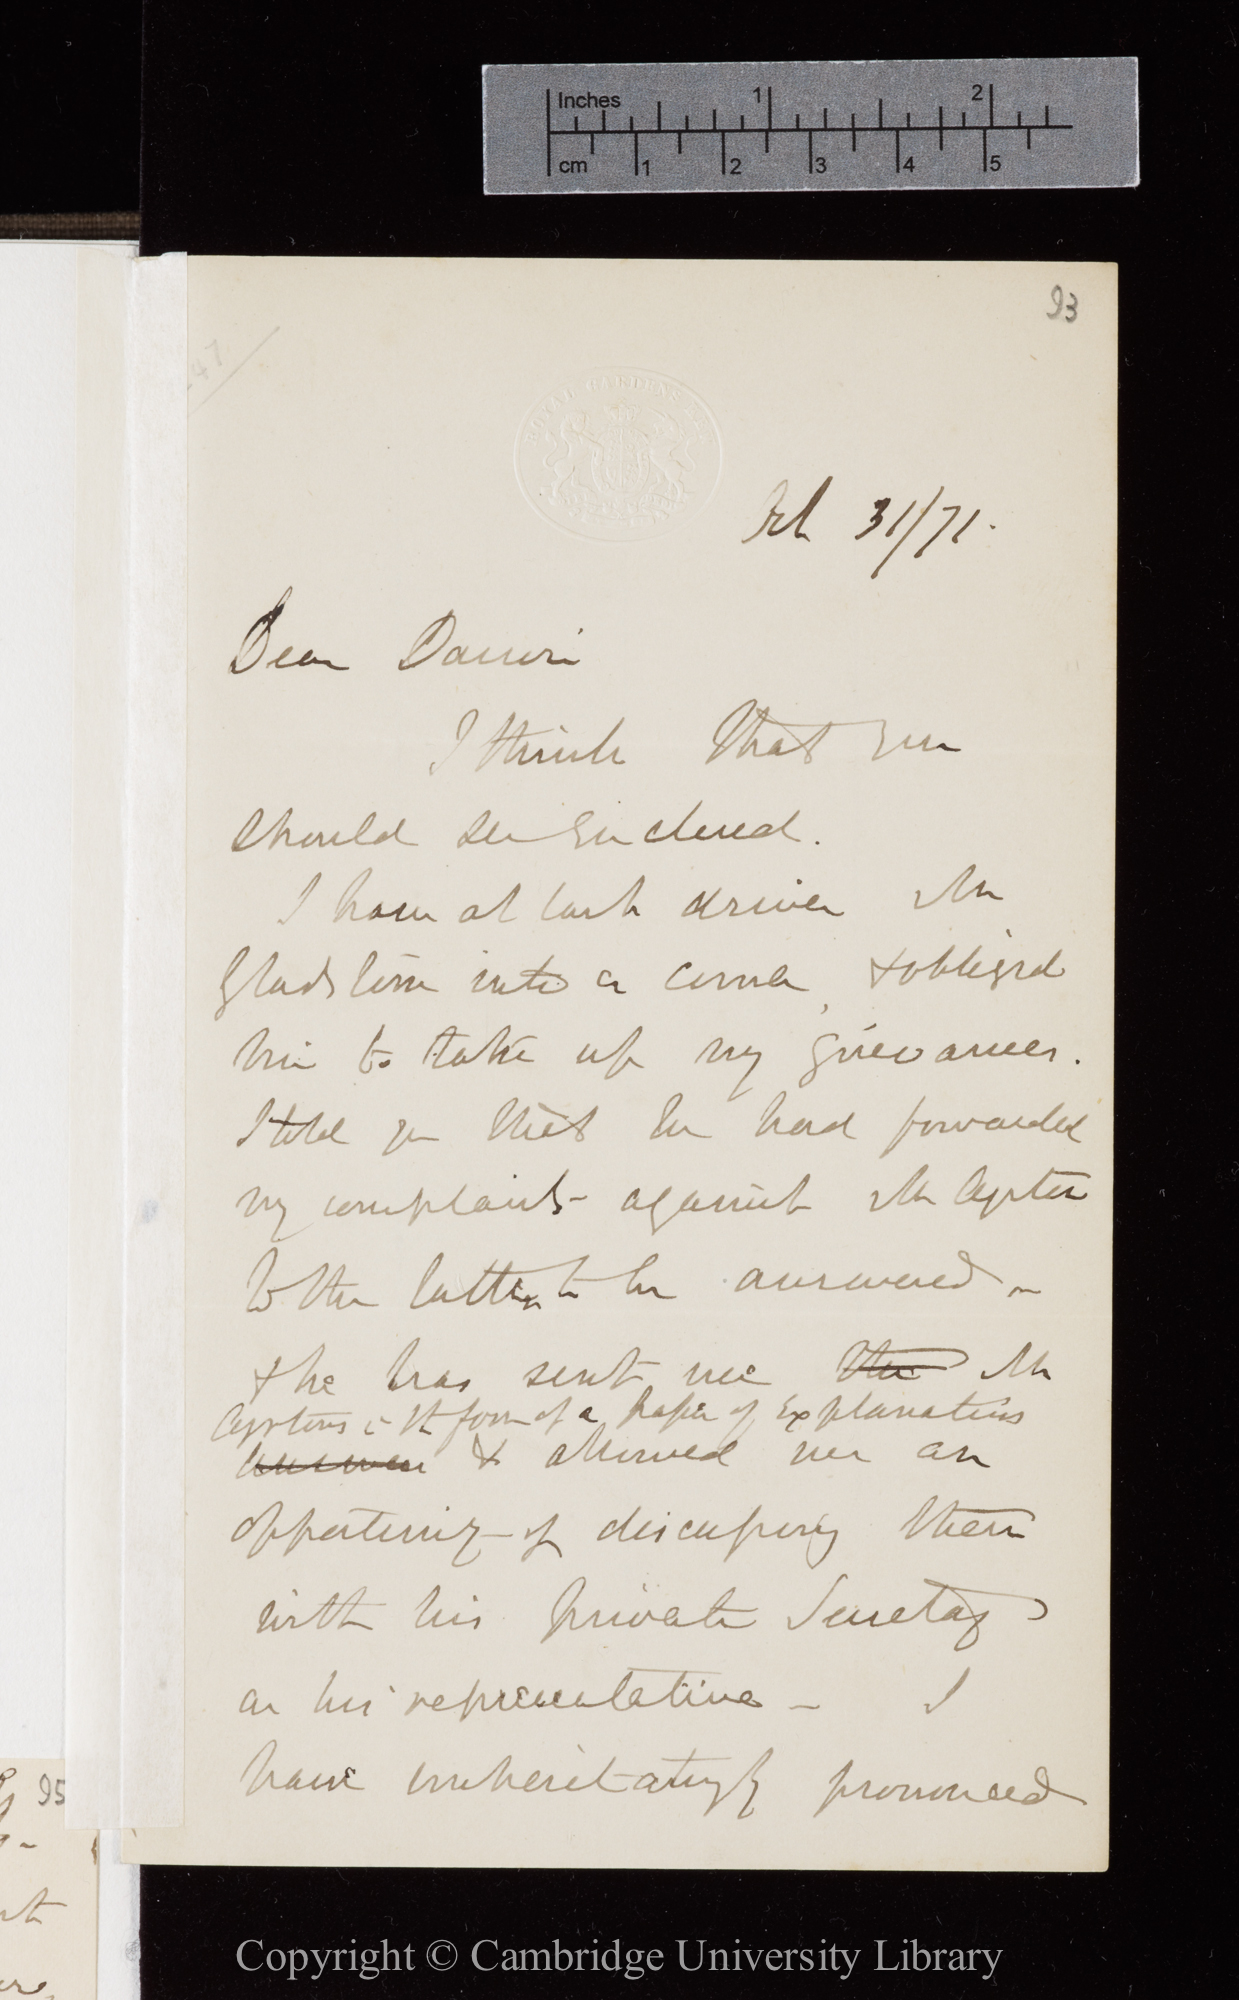 Inches 1 2
cm 1 2 3 4 5
93
ROYAL GARDENS KEW
Oct 31/71.
Dear Darwin
I think that you
should see Enclosed.
I have at last driven Mr
Gladstone into a corner, & obliged
him to take up my grievances.
I told you that he had forwarded
my complaints against Mr Ayrton
to the latter, to be answered —
& he has sent me the Mr
Ayrtons in the form of a paper of Explanations
answer & allowed me an
opportunity of discussing them
with his private Secretary
as his representative — I
have unhesitatingly pronounced
95
Copyright © Cambridge University Library